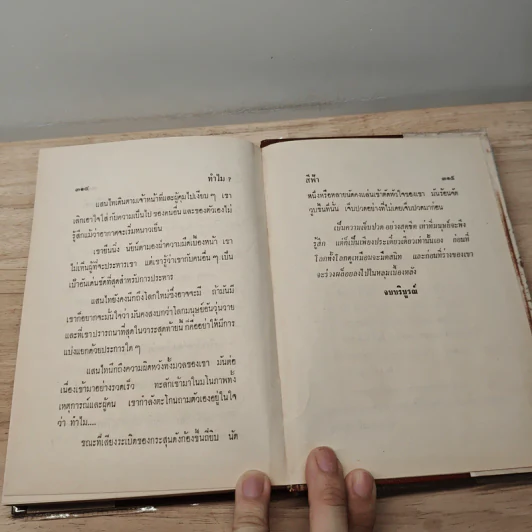 ๓๑๔ ทำไม ?
แสนไทเดินตามเจ้าหน้าที่และผู้คุมไปเงียบ ๆ เขา
เลิกเอาใจใส่กับความเป็นไปของคนอื่น และของตัวเองไม่
รู้สึกแม้ว่าอากาศจะเริ่มหนาวเย็น
เขายืนนิ่ง นัยน์ตามองฝ่าความมืดเบื้องหน้า เขา
ไม่เห็นผู้ที่จะประหารเขา แต่เขารู้ว่าเขากับคนอื่น ๆ เป็น
เป้าอันเด่นชัดที่สุดสำหรับการประหาร
แสนไทยังคงนึกถึงโลกใหม่ซึ่งอาจจะมี ถ้ามันมี
เขาก็อยากจะมั่นใจว่า มันคงสงบกว่าโลกมนุษย์อันวุ่นวาย
และที่เขาปรารถนาที่สุดในวาระสุดท้ายนี้ ก็คืออย่าให้มีการ
แบ่งแยกด้วยประการใด ๆ
แสนไทนึกถึงความผิดหวังทั้งมวลของเขา มันต่อ
เนื่องเข้ามาอย่างรวดเร็ว ทะลักเข้ามาในมโนภาพทั้ง
เหตุการณ์และผู้คน เขากำลังตะโกนถามตัวเองอยู่ในใจ
ว่า ทำไม....
ขณะที่เสียงระเบิดของกระสุนดังก้องขึ้นถี่ยิบ นัด
สีฟ้า ๓๑๕
หนึ่งหรือหลายนัดคงแล่นเข้าตัดหัวใจของเขา มันร้อนจัด
วูบขึ้นที่นั้น เจ็บปวดอย่างที่ไม่เคยเจ็บปวดมาก่อน
เป็นความเจ็บปวด อย่างสุดขีด เท่าที่มนุษย์จะพึง
รู้สึก แต่ก็เป็นเพียงประเดี๋ยวเดียวเท่านั้นเอง ก่อนที่
โลกทั้งโลกดูเหมือนจะมืดสนิท และก่อนที่ร่างของเขา
จะร่วงผล็อยลงไปในหลุมเบื้องหลัง
จบบริบูรณ์